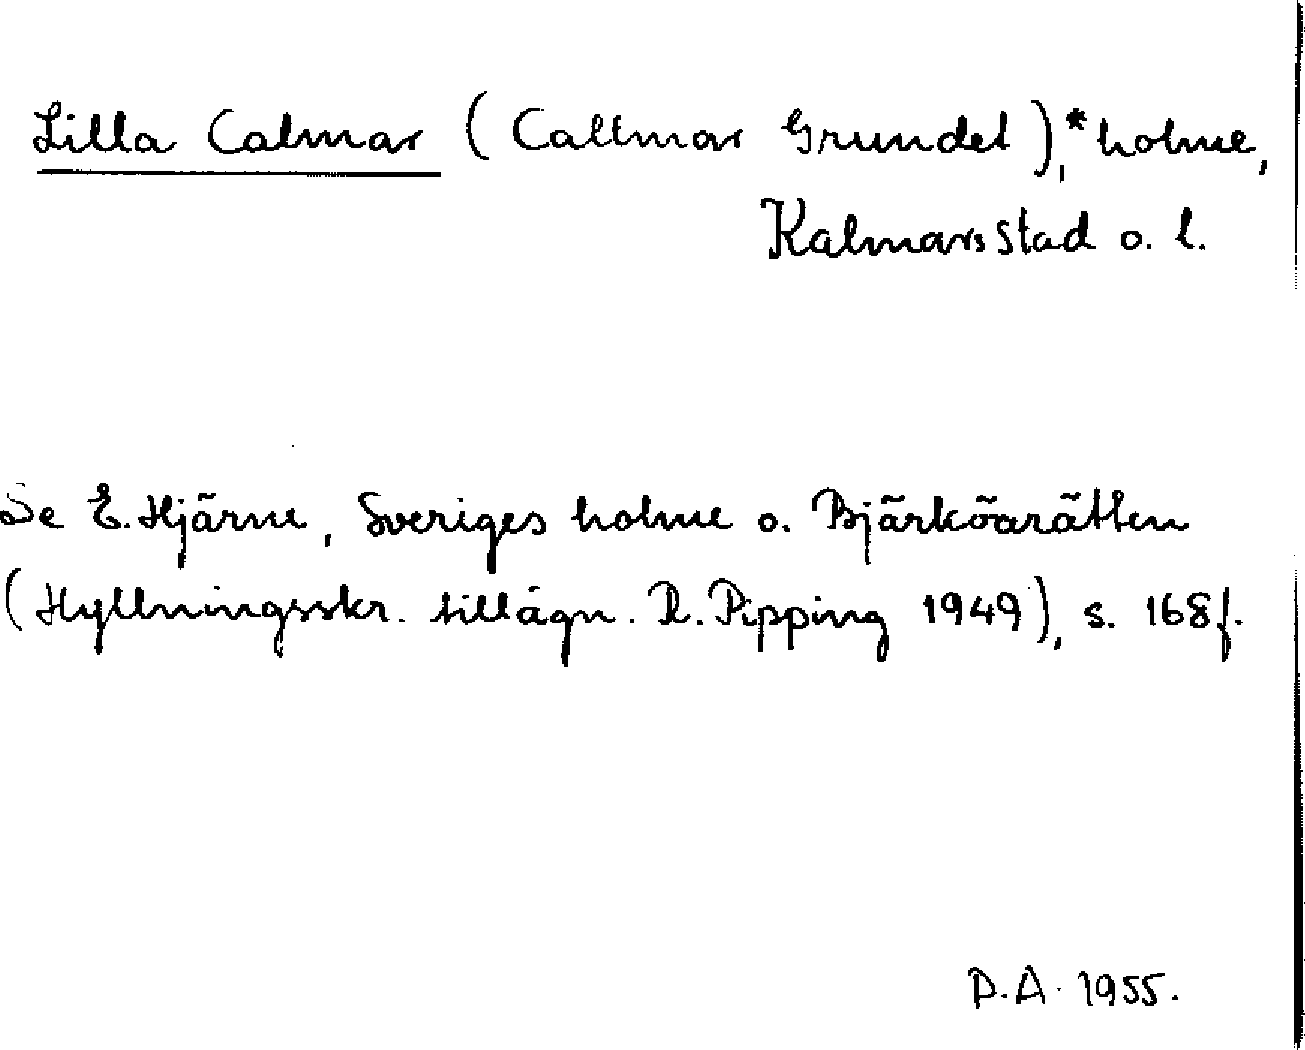 Lilla Calmar (Callmar Grundet),*holme,
Kalmars stad o. l.
Se E. Hjärne, Sveriges holme o. Bjärköarätten
(Hyllningsskr. tillägn. R. Pipping 1949), s. 168f.
D.A. 1955.